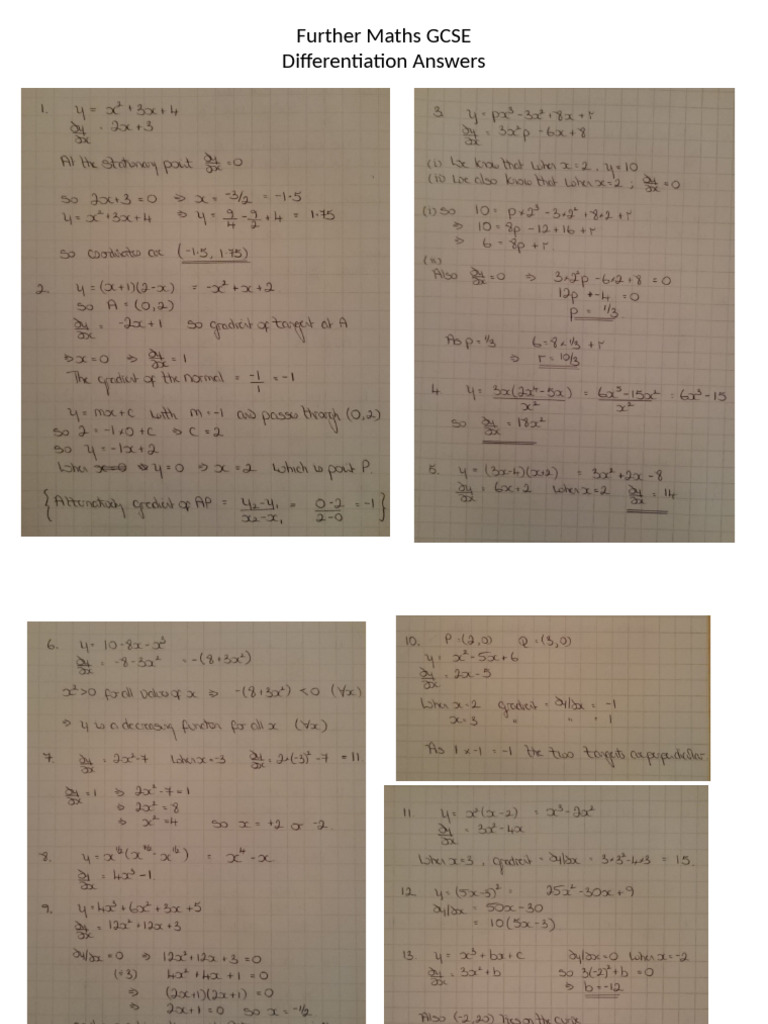 Further Maths GCSE
Differentiation Answers
1. y = x² + 3x + 4
∂y/∂x = 2x + 3
At the stationary point ∂y/∂x = 0
so 2x + 3 = 0 ⇒ x = -3/2 = -1.5
y = x² + 3x + 4 ⇒ y = 9/4 - 9/2 + 4 = 1.75
so coordinates are (-1.5, 1.75)
2. y = (x+1)(2-x) = -x² + x + 2
so A = (0,2)
∂y/∂x = -2x + 1 so gradient of tangent at A
⇒ x = 0 ⇒ ∂y/∂x = 1
The gradient of the normal = -1/1 = -1
y = mx + c with m = -1 and passes through (0,2)
so 2 = -1×0 + c ⇒ c = 2
so y = -1x + 2
When y = 0 ⇒ x = 2 which is point P.
{Alternatively gradient of AP = y₂-y₁/x₂-x₁ = 0-2/2-0 = -1}
3. y = px³ - 3x² + 8x + r
∂y/∂x = 3x²p - 6x + 8
(i) We know that when x = 2, y = 10
(ii) We also know that when x = 2, ∂y/∂x = 0
(i) so 10 = p×2³ - 3×2² + 8×2 + r
⇒ 10 = 8p - 12 + 16 + r
⇒ 6 = 8p + r
(ii)
Also ∂y/∂x = 0 ⇒ 3×2²p - 6×2 + 8 = 0
12p + -4 = 0
p = 1/3
As p = 1/3 6 = 8×1/3 + r
⇒ r = 10/3
4. y = 3x(2x⁴-5x)/x² = 6x⁵-15x²/x² = 6x³-15
so ∂y/∂x = 18x²
5. y = (3x-4)(x+2) = 3x² + 2x - 8
∂y/∂x = 6x + 2 when x = 2 ∂y/∂x = 14
6. y = 10 - 8x - x³
∂y/∂x = -8 - 3x² = -(8+3x²)
x² > 0 for all values of x ⇒ -(8+3x²) < 0 (∀x)
⇒ y is a decreasing function for all x (∀x)
7. ∂y/∂x = 2x² - 7 when x = -3 ∂y/∂x = 2×(-3)² - 7 = 11
∂y/∂x = 1 ⇒ 2x² - 7 = 1
⇒ 2x² = 8
⇒ x² = 4 so x = +2 or -2
8. = x⁴ - x
∂y/∂x = 4x³ - 1
9. y = 4x³ + 6x² + 3x + 5
∂y/∂x = 12x² + 12x + 3
∂y/∂x = 0 ⇒ 12x² + 12x + 3 = 0
(÷3) 4x² + 4x + 1 = 0
⇒ (2x+1)(2x+1) = 0
⇒ 2x + 1 = 0 so x = -1/2
10. P = (2,0) Q = (3,0)
y = x² - 5x + 6
∂y/∂x = 2x - 5
When x = 2 gradient = ∂y/∂x = -1
x = 3 " " = 1
As 1 × -1 = -1 the two tangents are perpendicular
11. y = x²(x-2) = x³ - 2x²
∂y/∂x = 3x² - 4x
When x = 3, gradient = ∂y/∂x = 3×3² - 4×3 = 15.
12. y = (5x-3)² = 25x² - 30x + 9
∂y/∂x = 50x - 30
= 10(5x-3)
13. y = x³ + bx + c ∂y/∂x = 0 when x = -2
∂y/∂x = 3x² + b so 3(-2)² + b = 0
⇒ b = -12
Also (-2,20) lies on the curve